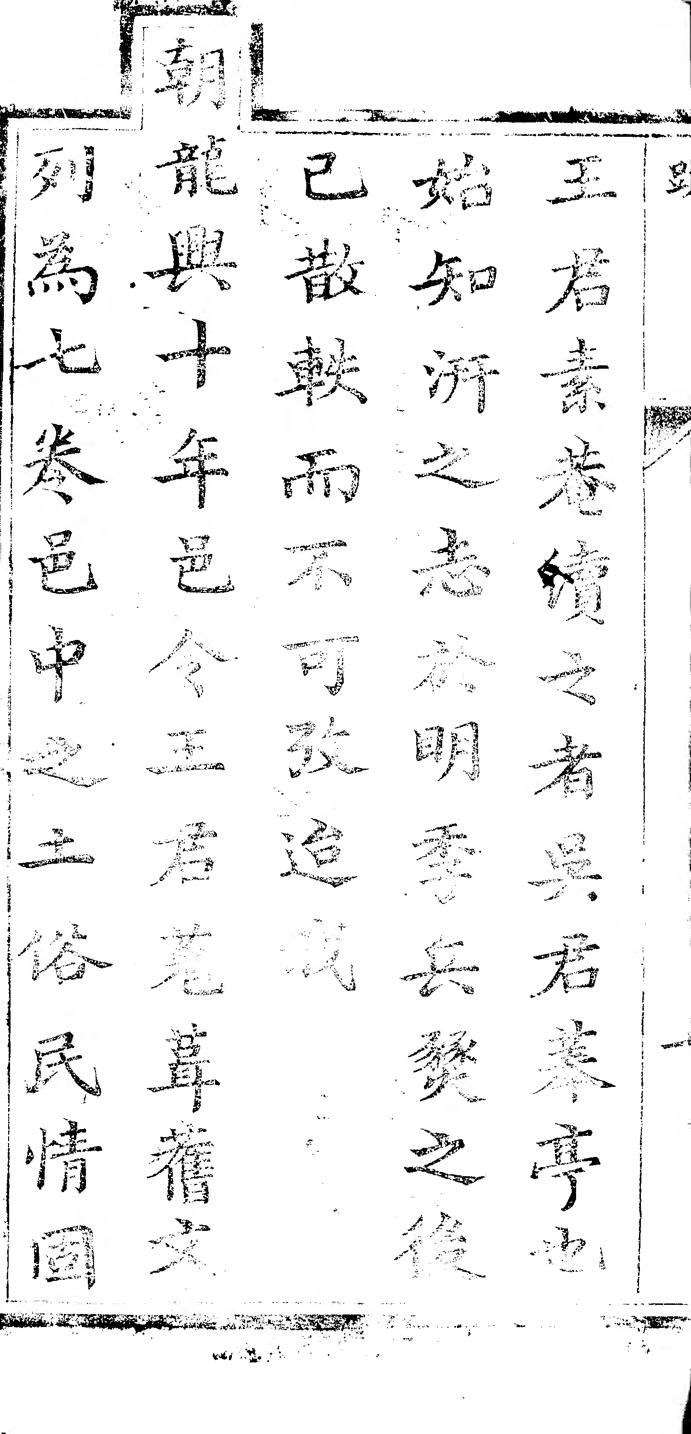 王君素菴續之者吳君莘亭也
始知汧之志於明季兵燹之後
已散軼而不可攷迨我
朝龍興十年邑令王君蒐葺舊文
列為七卷邑中之土俗民情固